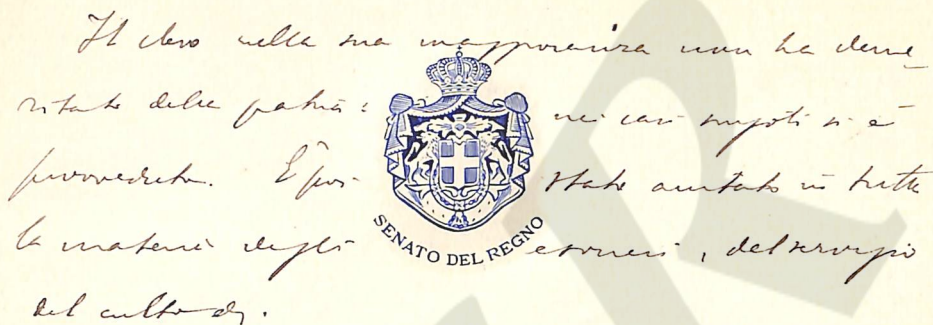 Il clero nella sua maggioranza non ha deme
ritato della patria: nei casi singoli si è
provveduto. È poi stato aiutato in tutta
la materia degli esoneri, del servizio
del culto
SENATO DEL REGNO